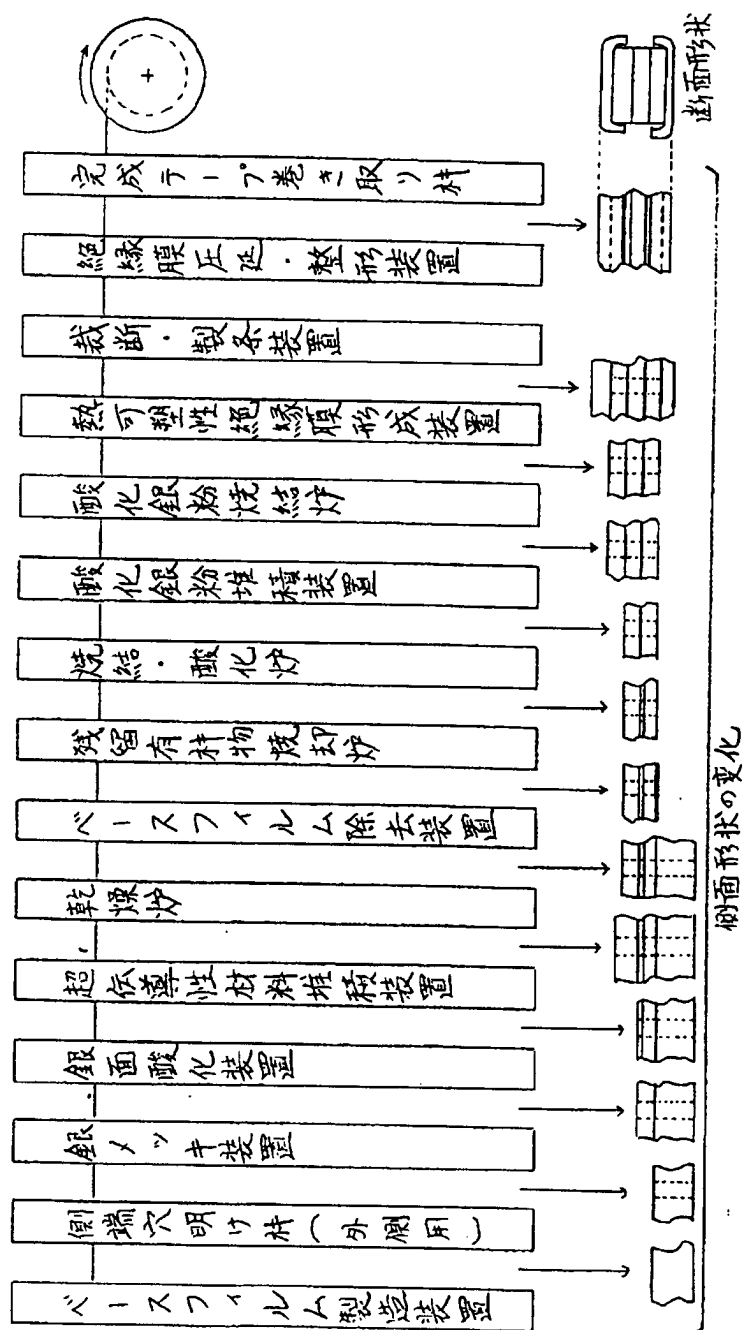 ベースフィルム製造装置
側端穴明け機(外側用)
銀メッキ装置
銀面酸化装置
超伝導性材料堆積装置
乾燥炉
ベースフィルム除去装置
残留有機物焼却炉
焼結・酸化炉
酸化銀粉堆積装置
酸化銀粉焼結炉
熱可塑性絶縁膜形成装置
裁断・製条装置
絶縁膜圧延・整形装置
完成テープ巻き取り機
側面形状の変化
断面形状